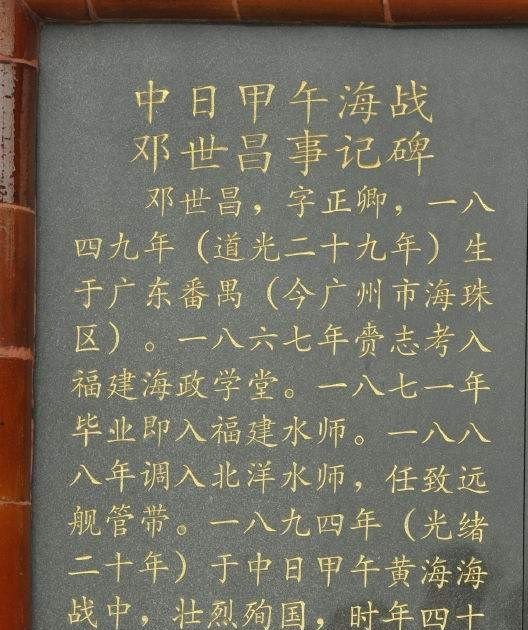 中日甲午海战
邓世昌事记碑
邓世昌，字正卿，一八
四九年（道光二十九年）生
于广东番禺（今广州市海珠
区）。一八六七年赍志考入
福建海政学堂。一八七一年
毕业即入福建水师。一八八
八年调入北洋水师，任致远
舰管带。一八九四年（光绪
二十年）于中日甲午黄海海
战中，壮烈殉国，时年四十